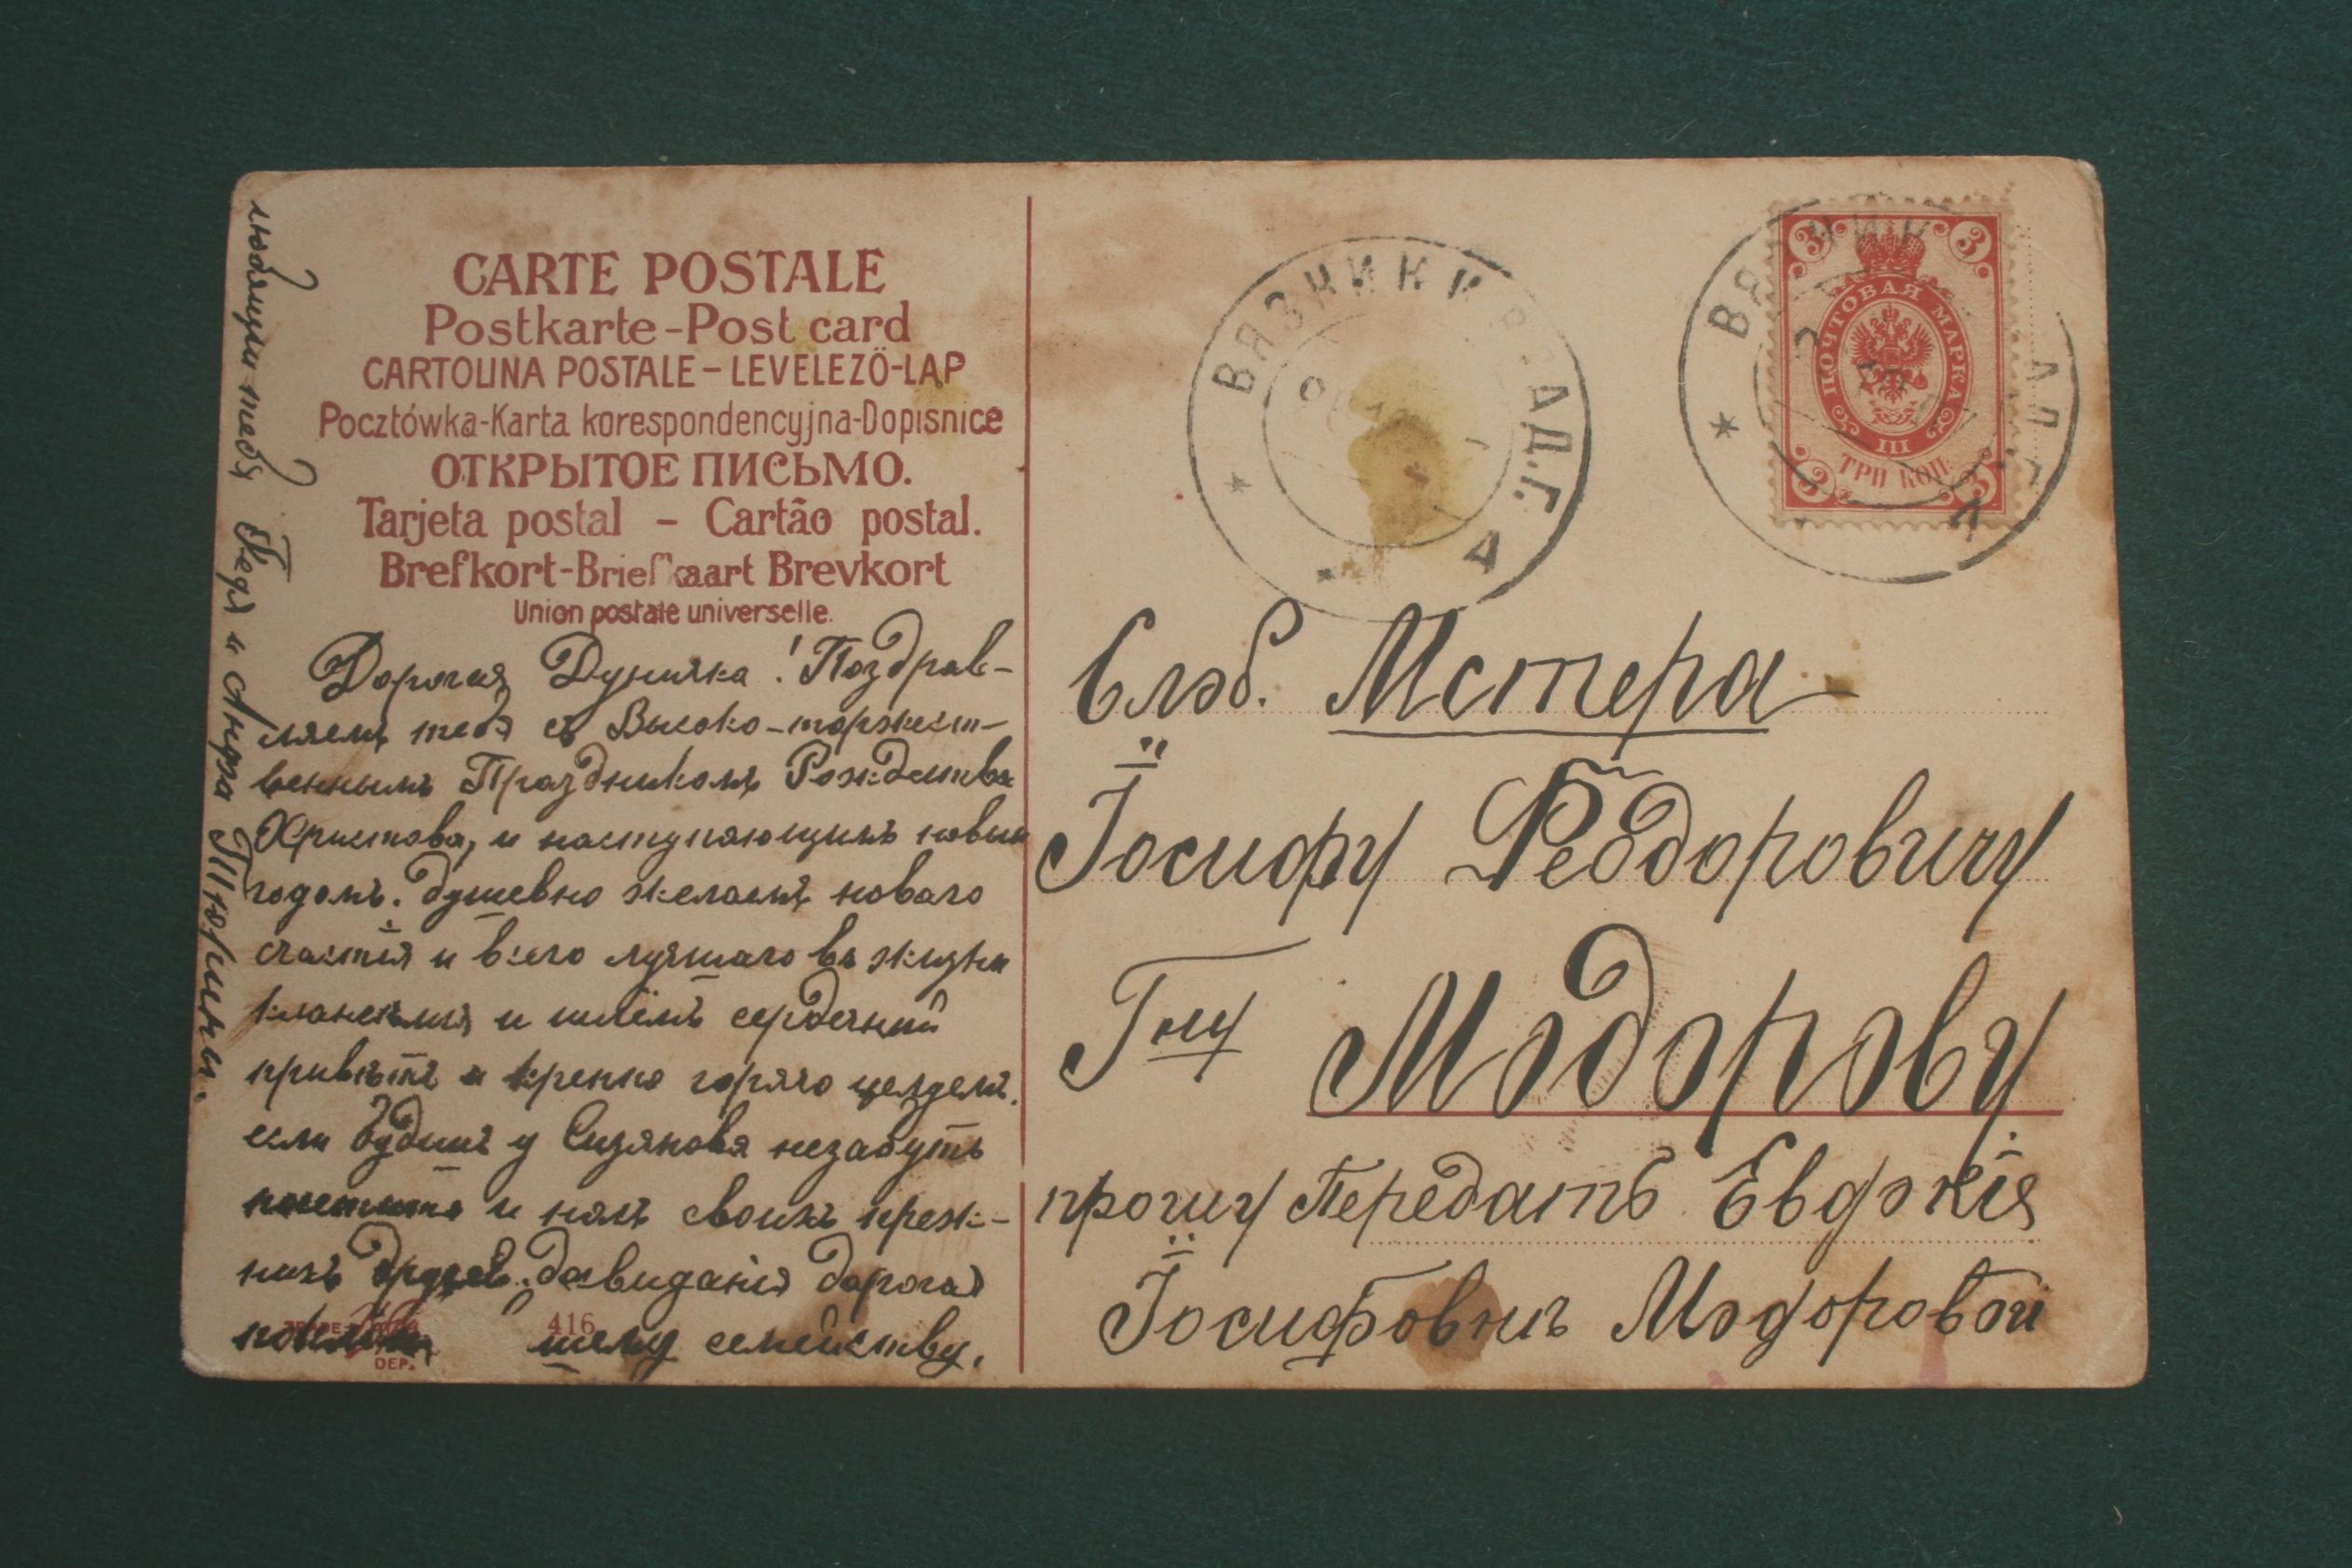 CARTE POSTALE
Postkarte-Post card
CARTOLINA POSTALE-LEVELEZŐ-LAP
Pocztówka-Karta korespondencyjna-Dopisnice
ОТКРЫТОЕ ПИСЬМО.
Tarjeta postal - Cartão postal.
Brefkort-Briefkaart Brevkort
Union postale universelle.
Дорогая Дунячка! Поздрав-
ляемъ тебя съ Высоко-торжест-
веннымъ Праздникомъ Рождества
Христова, и наступающимъ новым
годомъ. душевно желаемъ новаго
счастія и всего лучшаго въ жизни
кланеемся и шлемъ сердечный
привѣтъ и крепко горячо целуемъ.
если будишь у Сизякова незабудь
посетить и насъ своихъ преж-
нихъ друзей. досвиданія дорогая
всему семейству.
любящи тебя Федя и Анюта Шюрины.
416
DEP.
ВЯЗНИКИ ВЛАД.Г.
А
ВЯЗНИКИ ВЛАД.Г.
А
3 3
ПОЧТОВАЯ МАРКА
III
ТРИ КОП.
3 3
Слоб. Мстера
Іосифу Феодоровичу
Гну Модорову
прошу Передать Евдокія
Іосифовнѣ Модоровой